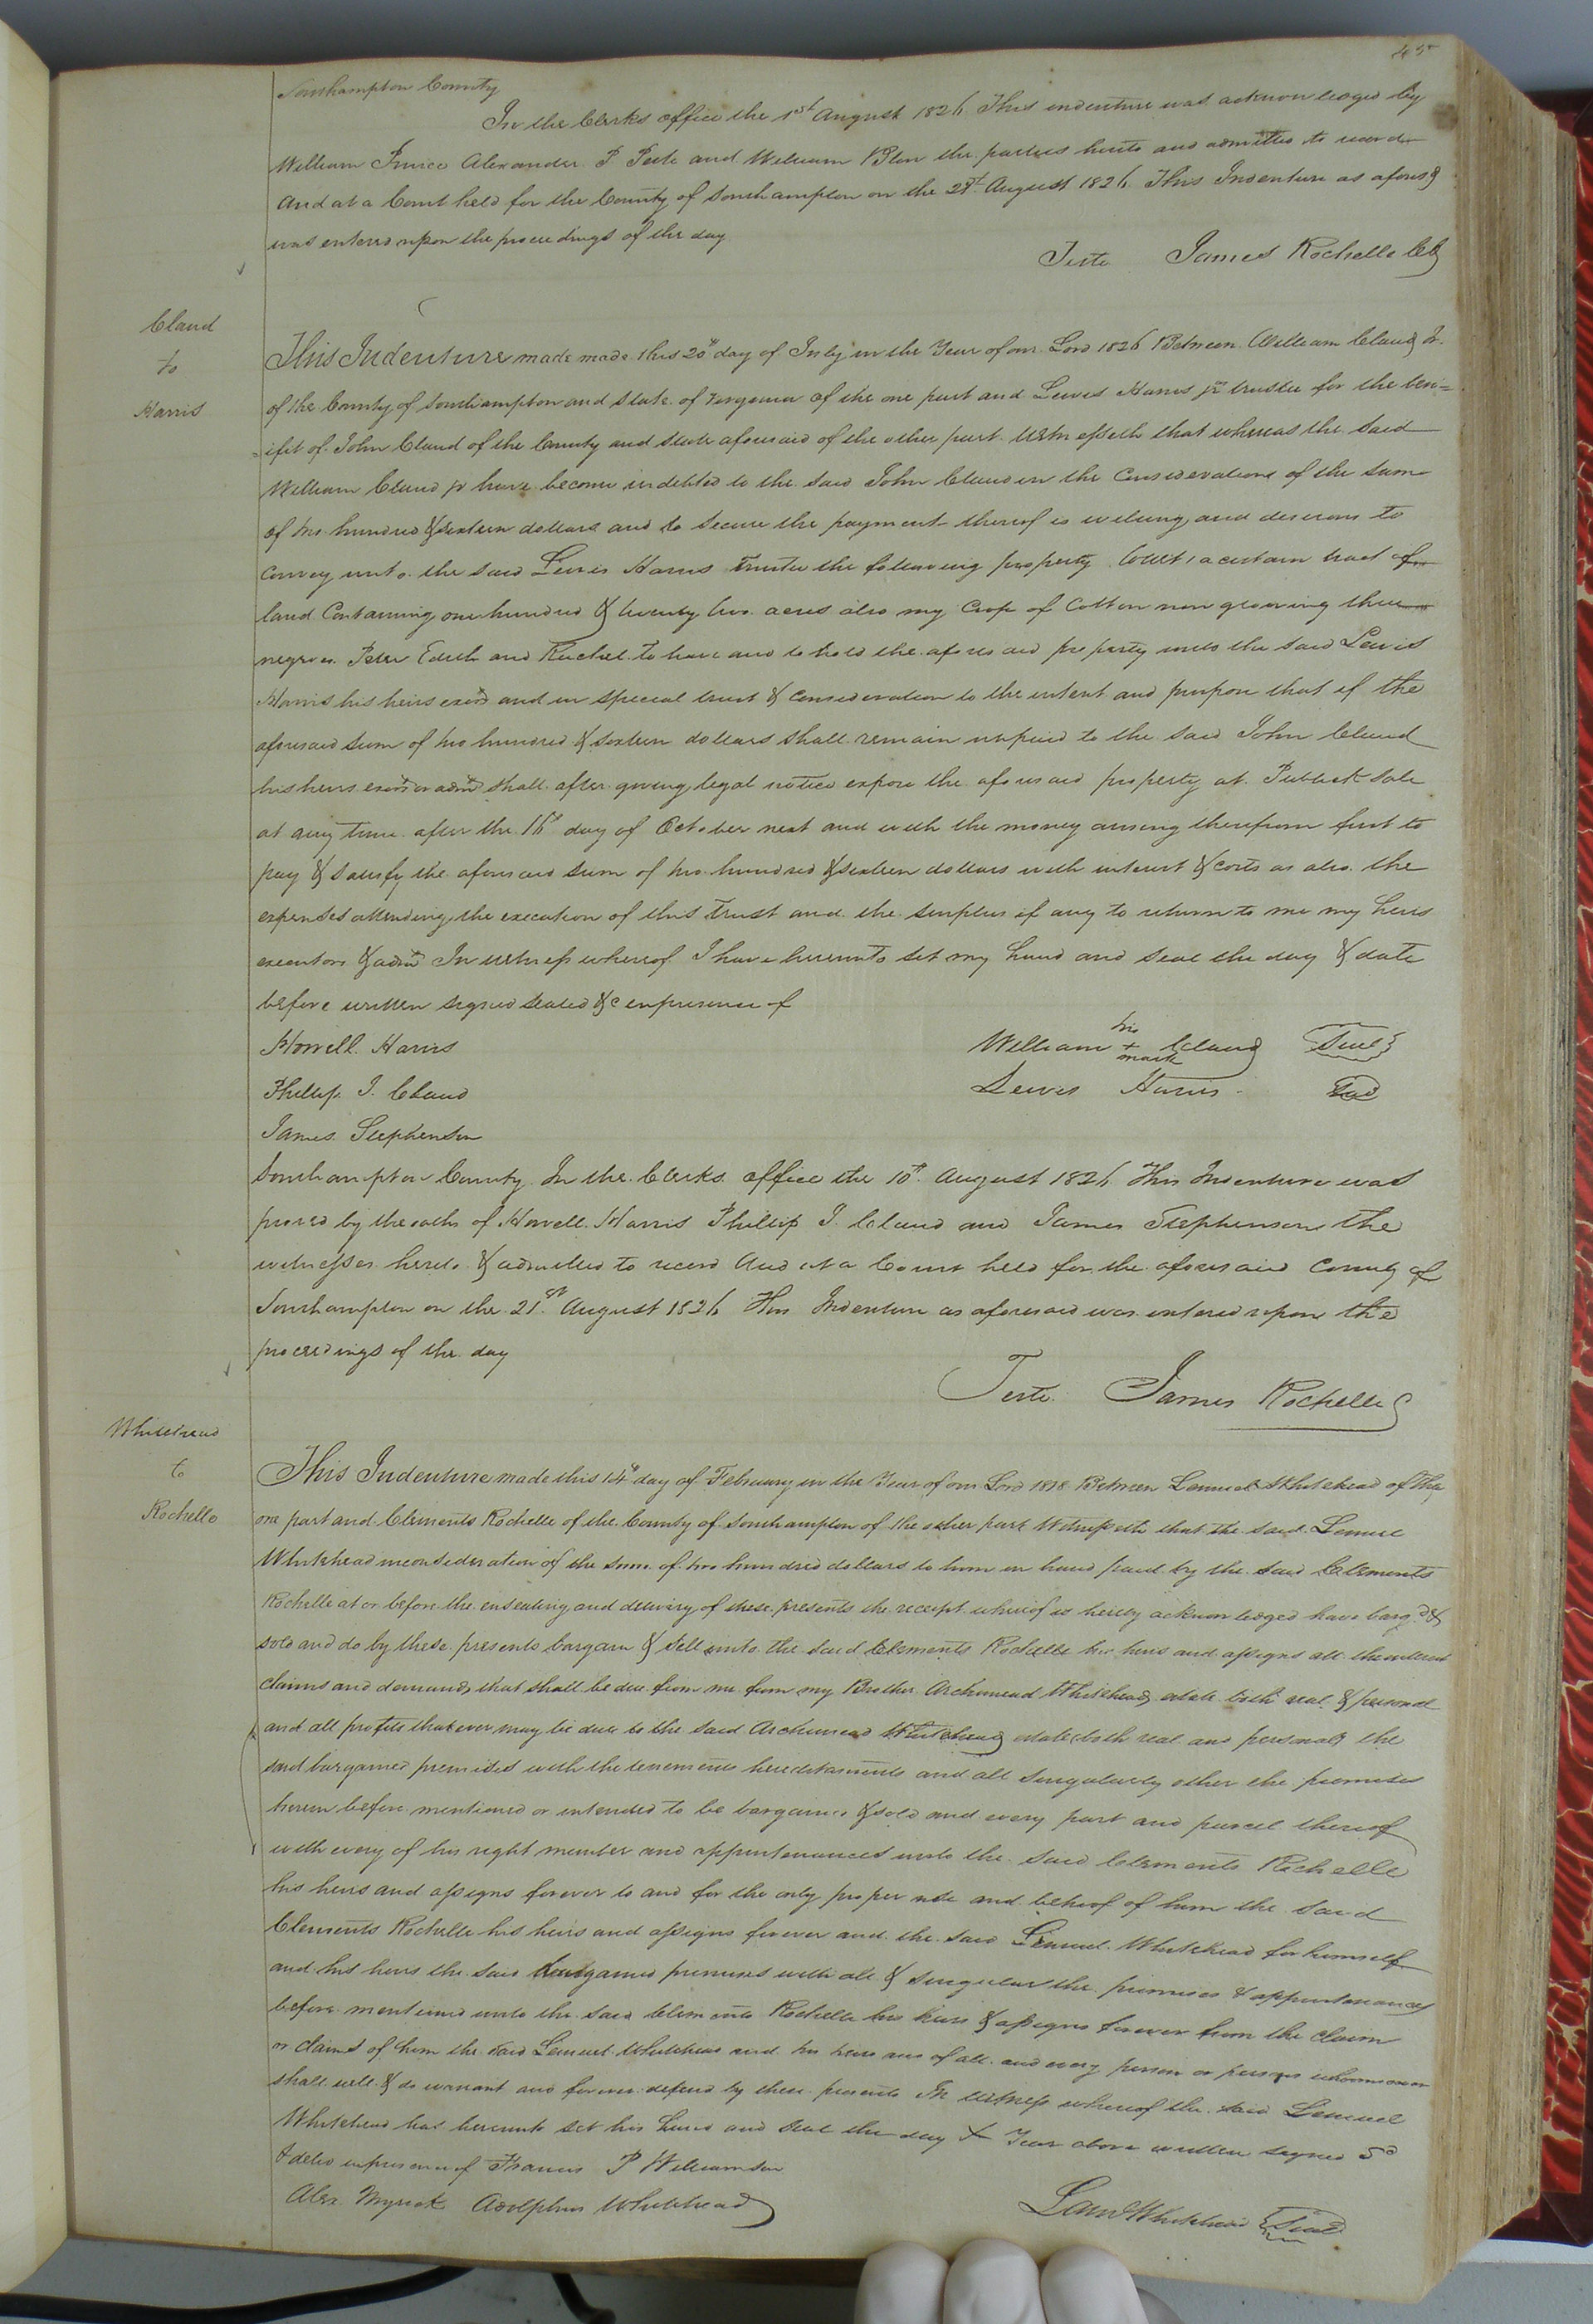 45
Southampton County
In the Clerks office the 1st August 1826 This indenture was acknowledged by
William Alexander P Peete and William the parties hereto and admitted to record
And at a Court held for the County of Southampton on the 21st August 1826 This Indenture as aforesd
was entered upon the proceedings of the day
Teste James Rochelle Clk
Claud
to
Harris
This Indenture made made this 20th day of July in the Year of our Lord 1826 Between William Claud Jr.
of the County of Southampton and State of Virginia of the one part and Lewis Harris jr trustee for the ben=
=ifit of John Claud of the County and State aforesaid of the other part Witnesseth that whereas the said
William Claud jr have become indebted to the said John Claud in the Considerations of the sum
of two hundred & sixteen dollars and to secure the payment thereof is willing and desirous to
convey unto the said Lewis Harris Trustee the following property (towit) a certain tract of
land Containing one hundred & twenty two acres also my Crop of Cotton now growing three
negroes Peter Edith and Rachel to have and to hold the aforesaid property unto the said Lewis
Harris his heirs exors and in special trust & consideration to the intent and purpose that if the
aforesaid sum of two hundred & sixteen dollars shall remain unpaid to the said John Claud
his heirs exors or admrs shall after giving legal notice expose the aforesaid property at Publick Sale
at any time after the day of October next and with the money arising therefrom first to
pay & satisfy the aforesaid sum of two hundred & sixteen dollars with interest & costs as also the
expenses attending the execution of this Trust and the surplus if any to return to me my heirs
executors & admrs In witness whereof I have hereunto set my hand and seal the day & date
before written signed sealed &c in presence of
Howell Harris William his + mark Claud Seal
Phillip J. Claud Lewis Harris Seal
James Stephenson
Southampton County In the Clerks office the 10th August 1826 This Indenture was
proved by the oaths of Howell Harris Phillip J. Claud and James Stephenson the
witnesses hereto & admitted to record And at a Court held for the aforesaid County of
Southampton on the 21st August 1826 This Indenture as aforesaid was entered upon the
proceedings of the day
Teste James Rochelle
Whitehead
to
Rochelle
This Indenture made this 14th day of February in the Year of our Lord 1818 Between Lemuel Whitehead of the
one part and Clements Rochelle of the County of Southampton of the other part Witnesseth that the said Lemuel
Whitehead inconsideration of the sum of two hundred dollars to him in hand paid by the said Clements
Rochelle at or before the ensealing and delivery of these presents the receipt whereof is hereby acknowledged have bargd &
sold and do by these presents bargain & sell unto the said Clements Rochelle his heirs and assigns all the interest
claims and demands that shall be due from me from my Brother Archimead Whitehead estate both real & personal
and all profits that ever may be due to the said Archimead Whitehead estate both real and personal the
said bargained premises with the tenements hereditaments and all singularly other the premises
herein before mentioned or intended to be bargained & sold and every part and parcel thereof
with every of his right member and appurtenances unto the said Clements Rochelle
his heirs and assigns forever to and for the only proper use and behoof of him the said
Clements Rochelle his heirs and assigns forever and the said Lemuel Whitehead for himself
and his heirs the said bargained premises with all & singular the premises & appurtenances
before mentioned unto the said Clements Rochelle his heirs & assigns forever from the claim
or claims of him the said Lemuel Whitehead and his heirs and of all and every person or persons whomsoever
shall will & do warrant and forever defend by these presents In witness whereof the said Lemuel
Whitehead has hereunto set his hand and seal the day & Year above written signed Sd
& deld in presence of Francis P Williamson
Alex. Myrick Adolphus Whitehead Leml Whitehead Seal